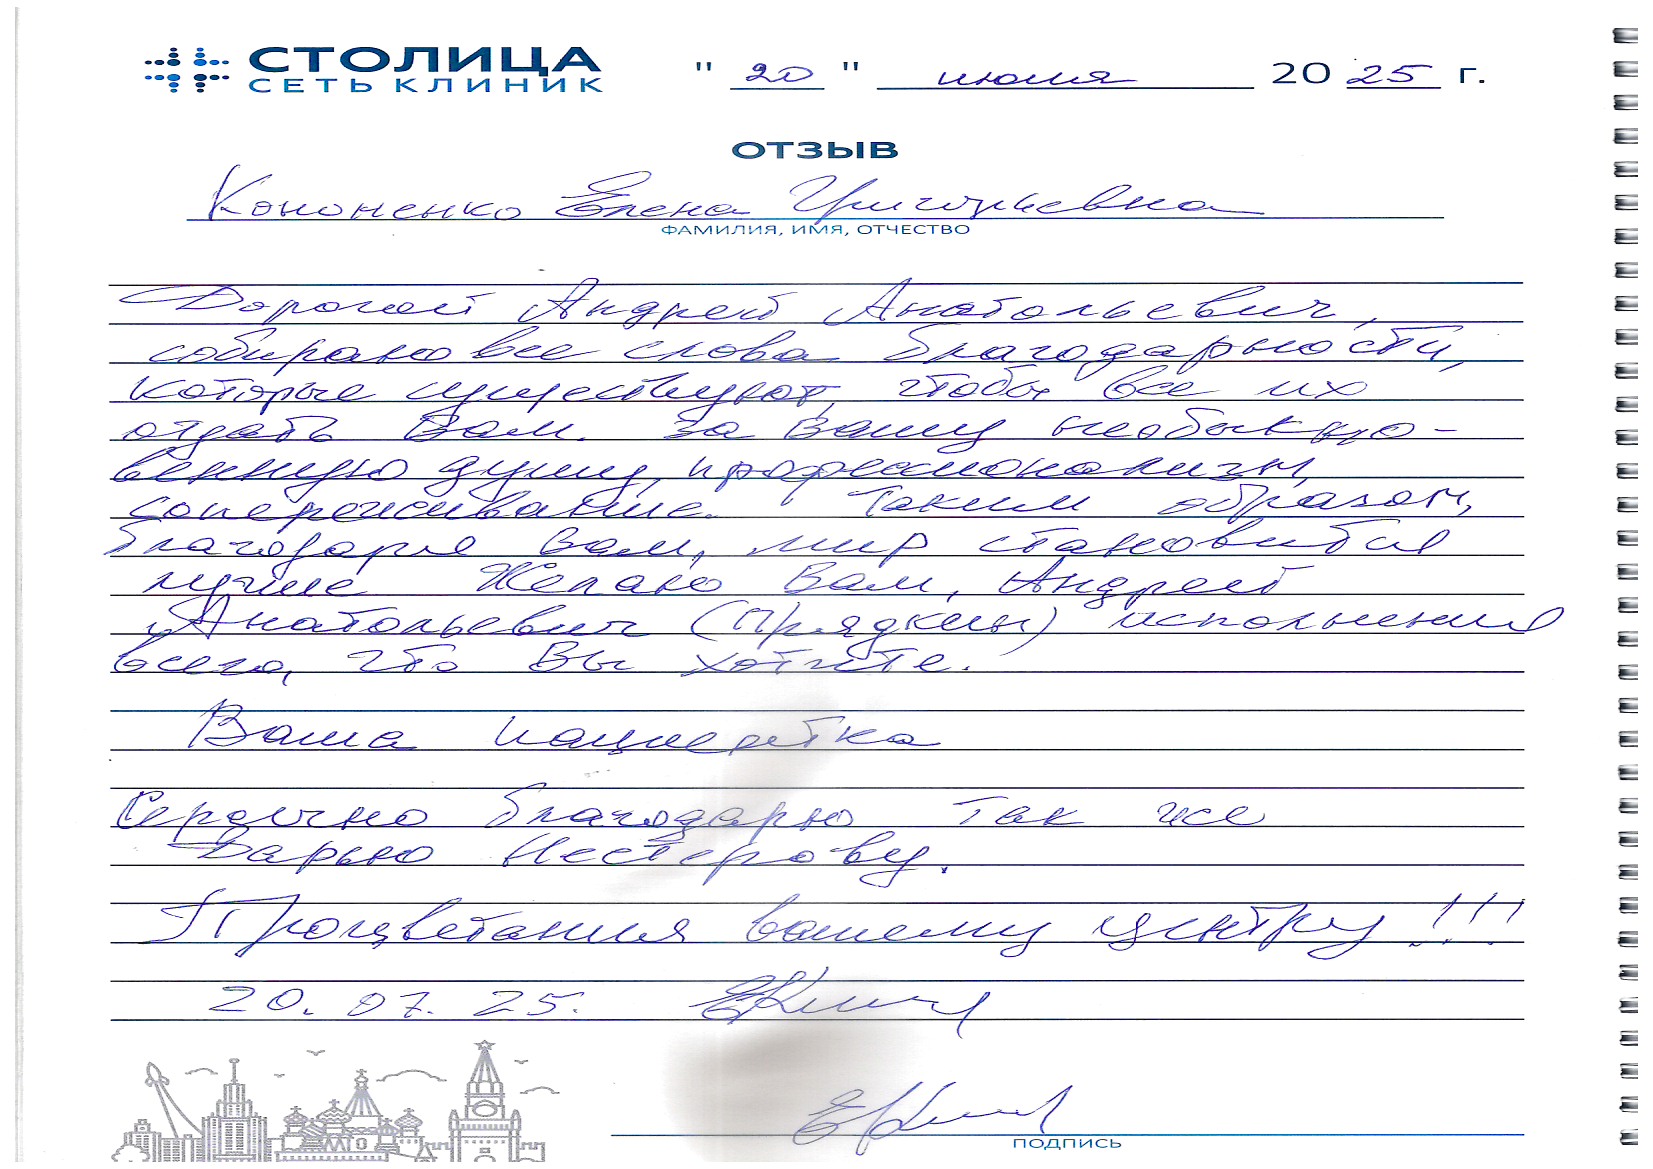 СТОЛИЦА
СЕТЬ КЛИНИК
" 20 " июля 20 25 г.
ОТЗЫВ
Кононенко Елена Григорьевна
ФАМИЛИЯ, ИМЯ, ОТЧЕСТВО
Дорогой Андрей Анатольевич,
собираю все слова благодарности,
которые существуют, чтобы все их
отдать Вам. За Вашу необыкно-
венную душу, профессионализм,
сопереживание. Таким образом,
благодаря вам, мир становится
лучше Желаю Вам, Андрей
Анатольевич (Прядкин) исполнения
всего, что Вы хотите.
Ваша пациентка
Сердечно благодарю так же
Дарью Нестерову.
Процветания вашему центру!!!
20.07.25.
ПОДПИСЬ